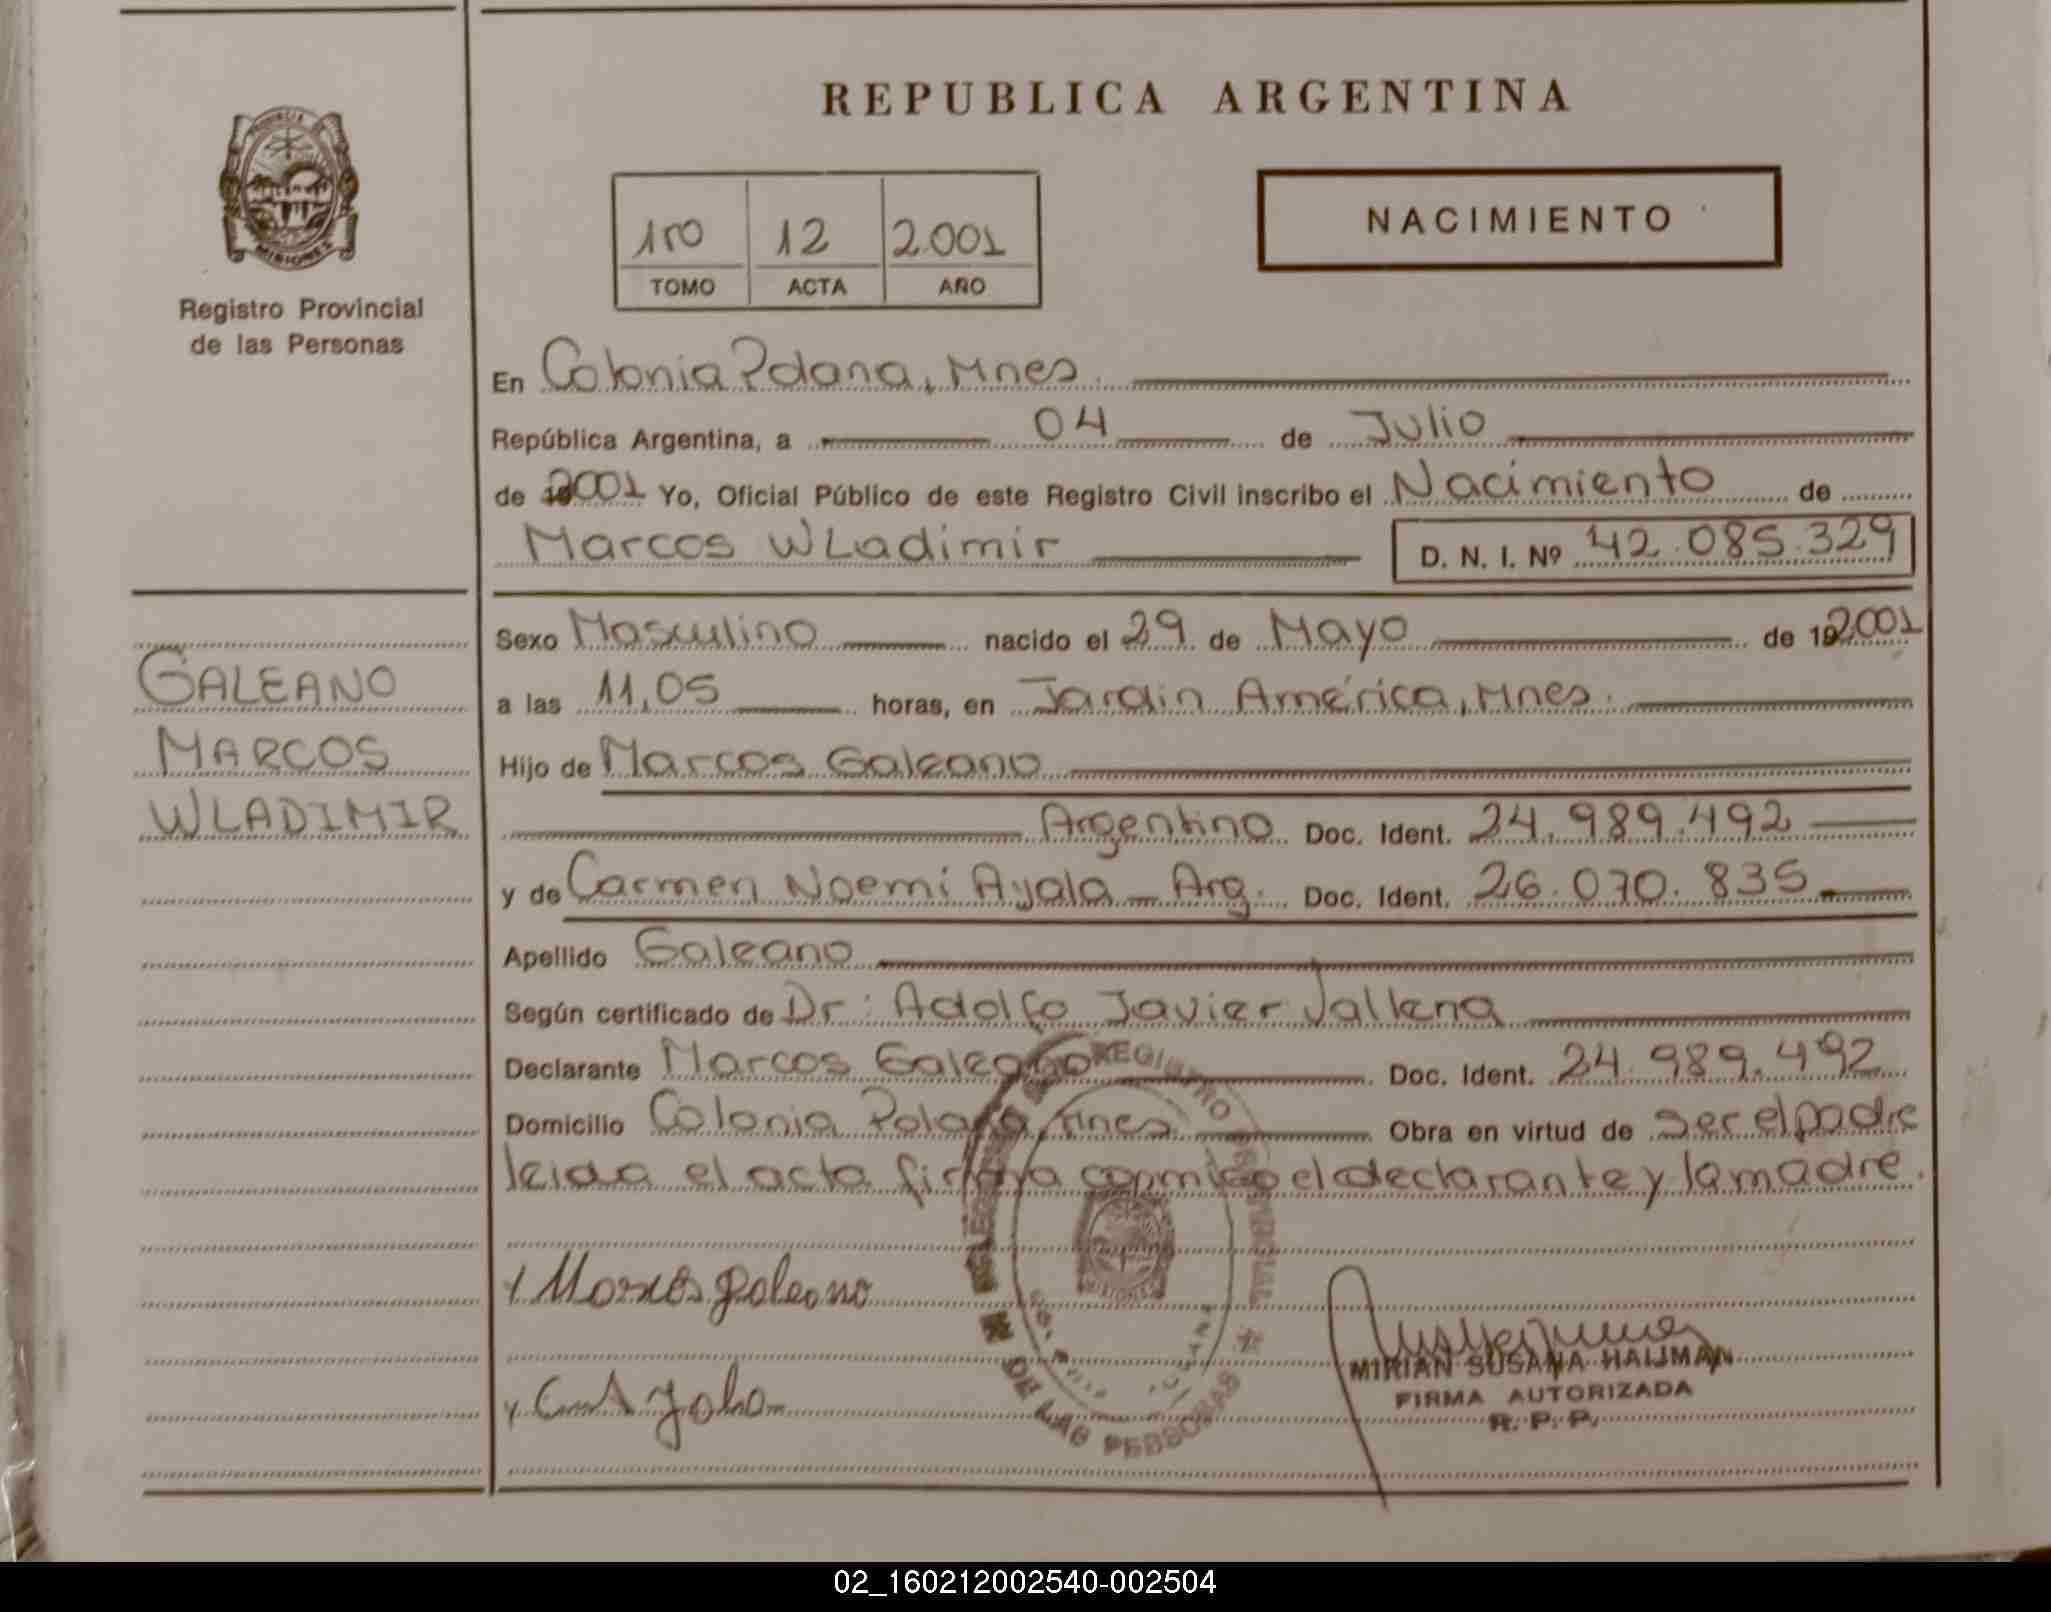 REPUBLICA ARGENTINA
PROVINCIA DE
MISIONES
Registro Provincial
de las Personas
1ro 12 2.001
TOMO ACTA AÑO
NACIMIENTO
En Colonia Polana, Mnes.
República Argentina, a 04 de Julio
de 2001 Yo, Oficial Público de este Registro Civil inscribo el Nacimiento de
Marcos Wladimir D. N. I. Nº 42.085.329
GALEANO
MARCOS
WLADIMIR
Sexo Masculino nacido el 29 de Mayo de 192001
a las 11,05 horas, en Jardin América, Mnes.
Hijo de Marcos Galeano
Argentino Doc. Ident. 24.989.492
y de Carmen Noemi Ayala - Arg. Doc. Ident. 26.070.835
Apellido Galeano
Según certificado de Dr: Adolfo Javier
Declarante Marcos Galeano Doc. Ident. 24.989.492
Domicilio Colonia Polana, Mnes Obra en virtud de ser el padre
leida el acta firma conmigo el declarante y la madre.
Marcos galeano
C A yala
REGISTRO PROVINCIAL DE LAS PERSONAS
MISIONES
MIRIAN SUSANA HAIJMAN
FIRMA AUTORIZADA
R. P. P.
02_160212002540-002504